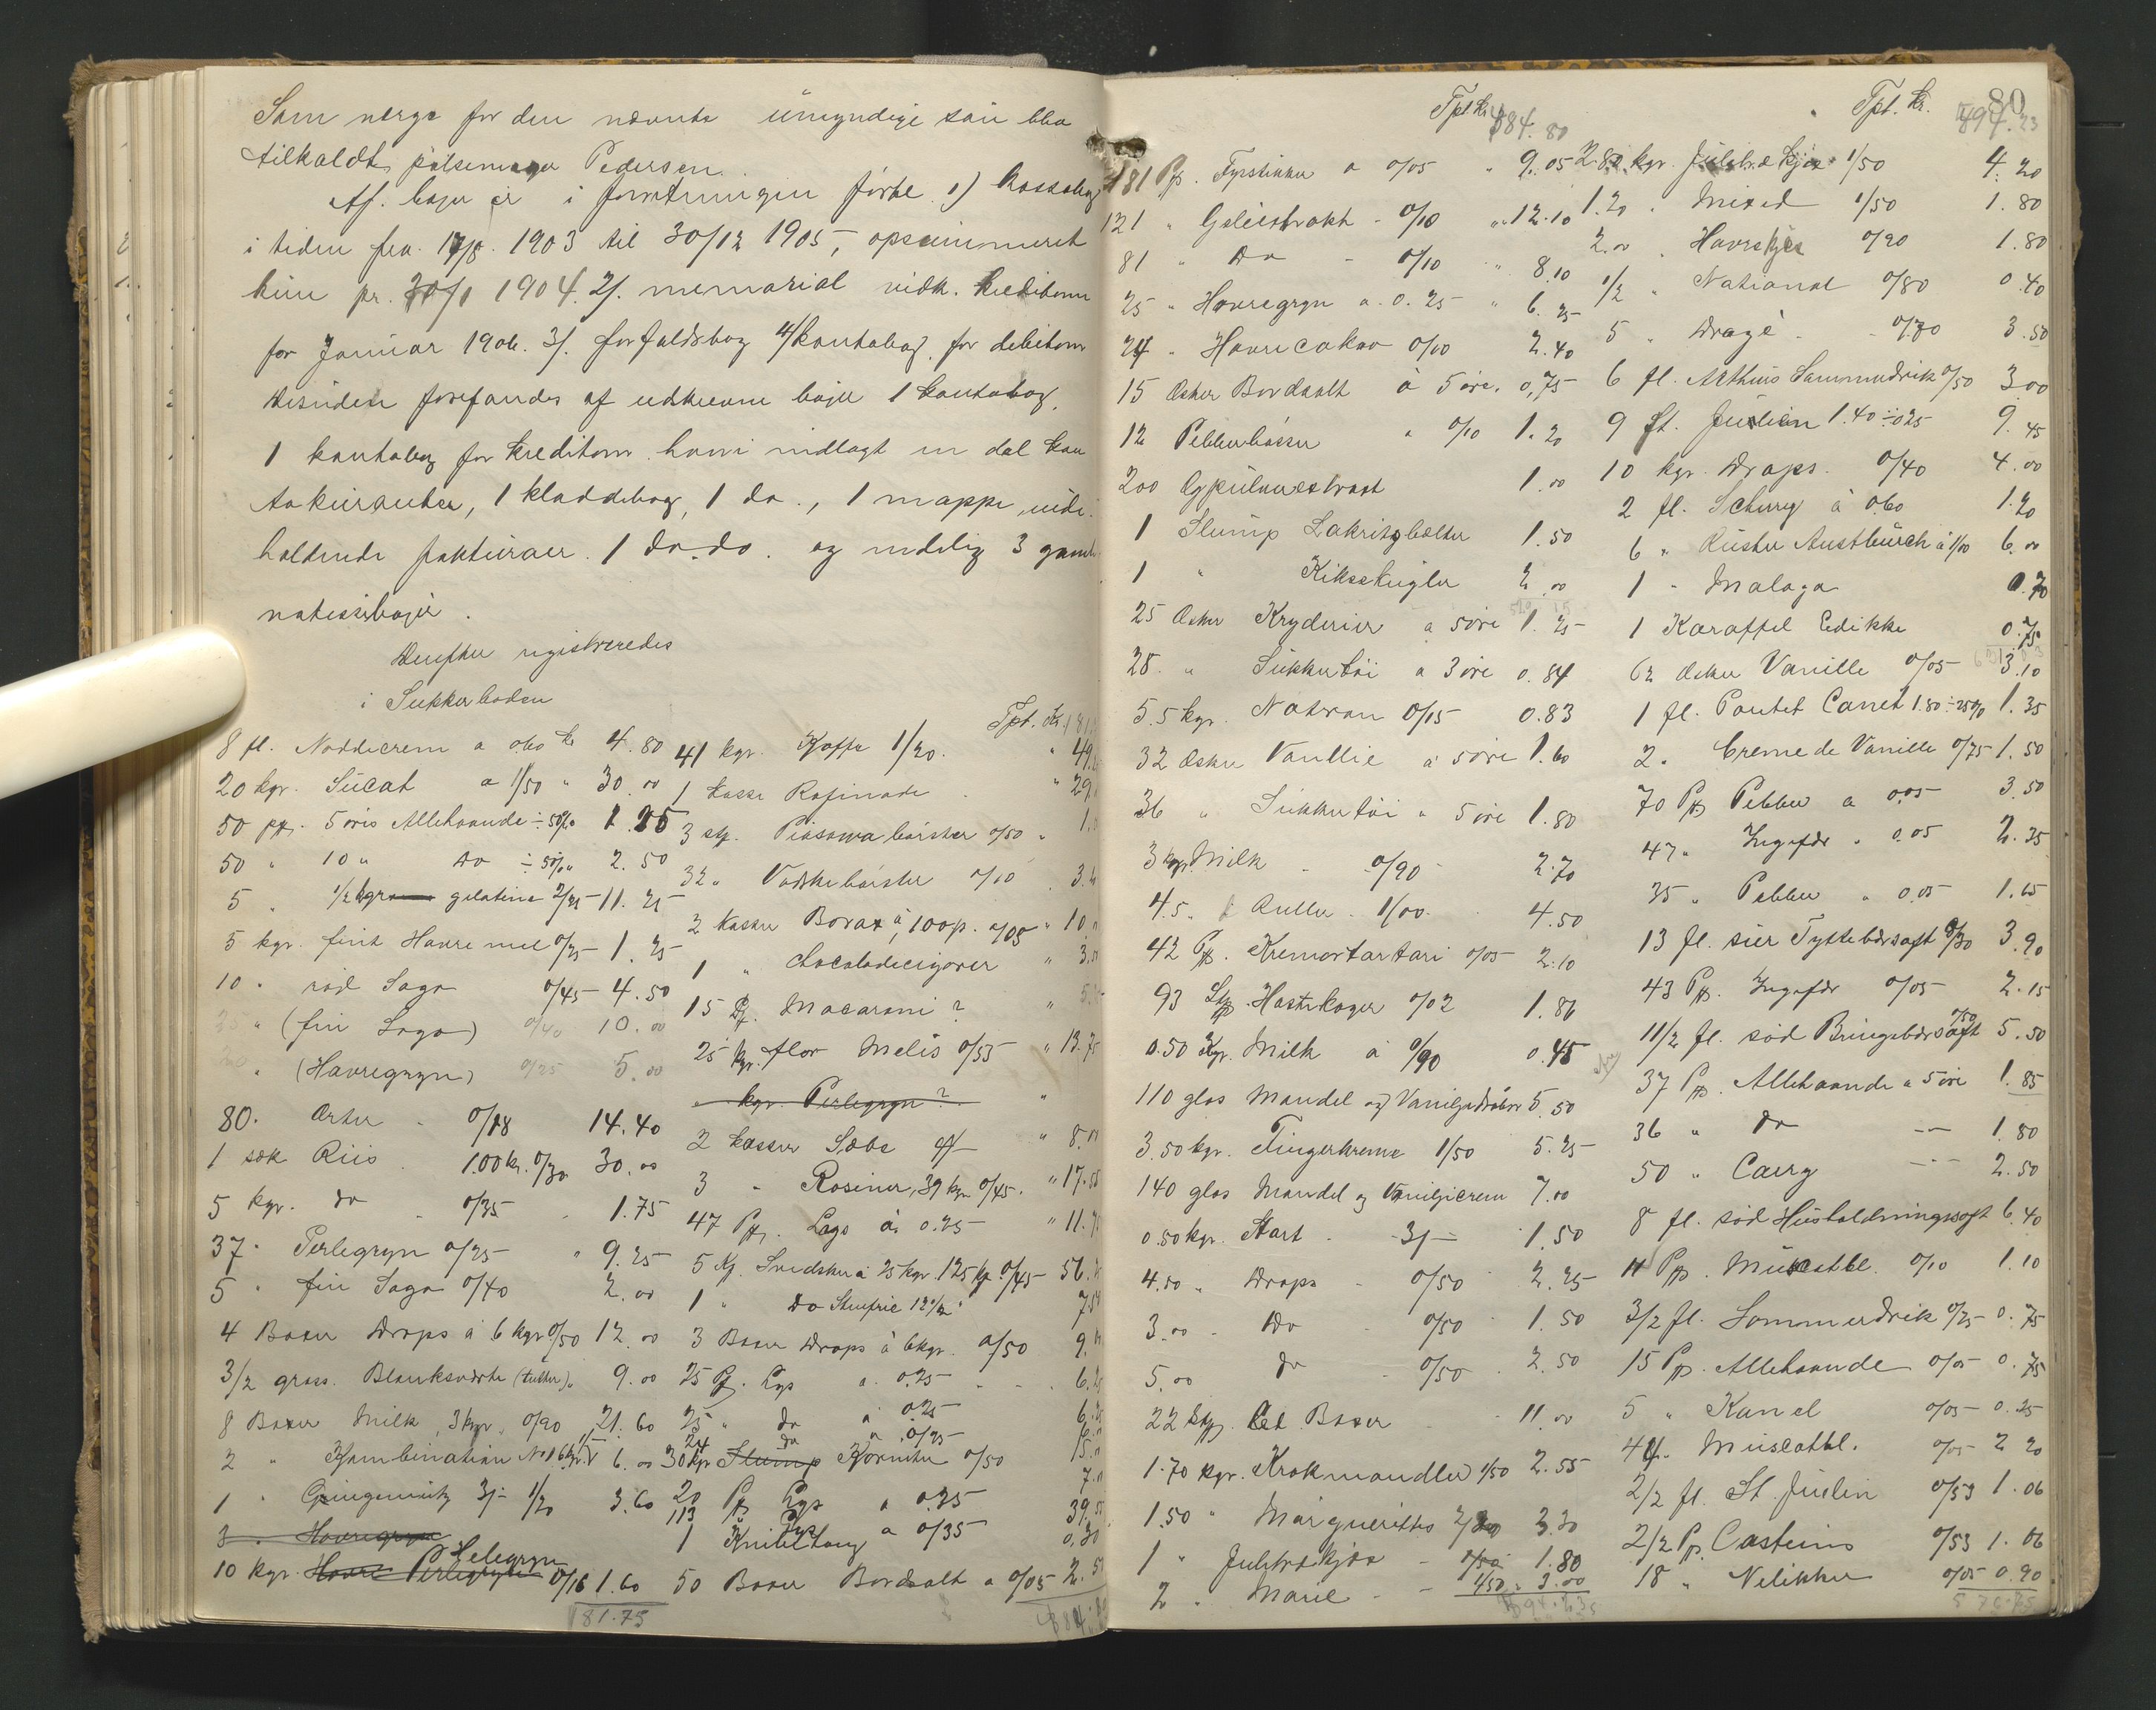 Som værge for den nævnte umyndige søn blev
tilkaldt pølsemager Pedersen.
Af bøger er i forretningen førte 1) kassabog
i tiden fra 17/8 1903 til 30/12 1905, opsummeret
kun pr. 1904. 2/. memorial vedk. kreditorer
for Januar 1906. 3/. forfaldsbog 4/ kontobog for debitorer
desuden forefandes af udskrevne bøger 1 kontobog,
1 kontobog for kreditorer hvori indlagt en del kon
tokuranter, 1 kladdebog, 1 do., 1 mappe inde-
holdende fakturaer. 1 do. do. og endelig 3 gamle
notissbøger.
Derefter registreredes
i Sukkerboden
8 fl. Noddecrem a 060 kr 4.80
20 kgr. Sucat a 1/50 " 30.00
50 pk. 5 øres Allehaande ÷ 50% 1.25
50 " 10 " Do ÷ 50% 2.50
5 " 1/2 kgr gelatine 2/25 11.25
5 kgr. fint Havremel 0/25 1.25
10 " rød Sago 0/45 4.50
" (fin Sago) 0/40 10.00
" (Havregryn) 0/25 5.00
80 " Erter 0/18 14.40
1 sæk Riis 100 kr. 0/30 30.00
5 kgr. do 0/35 1.75
37 " Perlegryn 0/25 " 9.25
5 " fin Sago 0/40 2.00
4 Boxer Drops à 6 kgr 0/50 12.00
3/2 gross. Blanksværte (tuber) 9.00
8 Boxer Milk, 3 kgr. 0/90 21.60
2 " Kombination No 1 6 kgr. 6.00
1 " Gingernuts 3/- 1/20 3.60
3 " Havregryn
10 kgr. Helegryn 0/16 1.60
181.75
Tpt. Kr. 181.
41 kgr. Kaffe 1/20. " 49.
1 kasse Rafinade " 29.
3 stk. Piasava børster 0/50 " 1.
32 " Vaskebørster 0/10 " 3.
2 kasser Borax à 100 p. 0/05 " 10.
1 " Chocoladecigarer " 3.
15 Pk. Macaroni ? " 5.
25 kgr. flor Melis 0/55 " 13.75
kgr. Perlegryn ? "
2 kasser Sæbe 4/- " 8.00
3 " Rosiner, 39 kgr 0/45. " 17.55
47 Pk. Lys à 0.25 " 11.75
5 Kj. Svedsker à 25 kgr. 125 kg. 0/45 56.
1 " Do Stenfrie 12½ 7.50
3 Boxer Drops à 6 kgr. 0/50 9.
25 Pk. Lys a 0.25 6.25
25 " do a 0.25 6.25
24 do a 0/25 6.
30 kgr. Slump Korinter 0/50 15.
20 Pk Lys a 0.35 7.
113 Lys a 0/35 39.55
1 Knibtang 0.30
50 Boxer Bordsalt a 0/05 2.50
80
Tpt. kr. 384.80
181 Pk. Fyrstikker a 0/05 " 9.05
121 " Geleextrakt 0/10 " 12.10
81 " Do - 0/10 " 8.10
25 " Havregryn a 0.25 " 6.25
24 " Havrecakao 0/10 2.40
15 Æsker Bordsalt à 5 øre. 0,75
12 Pebberbøsser " 0/10 1.20
1.00
1 Slump Lakritzbælter 1.50
1 " Kikskugler 2.00
25 Æsker Kryderier a 5 øre 1.25
28 " Sukkertøi a 3 øre 0.84
5.5 kgr. Natron 0/15 0.83
32 Æsker Vanillie a 5 øre 1.60
36 " Sukkertøi " 5 øre 1.80
3 kgr. Milk 0/90 2.70
4.5 " 1/00 4.50
42 Pk. Kremortartari 0/05 2.10
93 Stk. Hostekager 0/02 1.86
0.50 kgr. Milk à 0/90 0.45
110 glas Mandel og Vaniljedråber 5.50
3.50 kgr. Fingerkreme 1/50 5.25
140 glas Mandel og Vaniljicrem 7.00
0.50 kgr. Start 3/- 1.50
4.50 " Drops 0/50 2.25
3.00 " Do 0/50 1.50
5.00 do 0/50 2.50
22 Stk. Boxer 11.00
1.70 kgr. Krokmandler 1/50 2.55
1.50 " Margueritts 2/20 3.30
1 " Julebrødkjex 1.80
2 " Marie 1/50 " 3.00
494.23
Tpt. kr. 494.23
2.80 kgr. Julebrødkjex 1/50 4.20
1.20 " Mixed 1/50 1.80
2.00 " Havrekjex 0/90 1.80
1/2 " National 0/80 0.40
5 " Dragé 0/70 3.50
6 fl. Arthurs Sommerdrik 0/50 3.00
9 St. Julien 1.40 ÷ 025 9.45
10 kgr. Drops. 0/40 4.00
2 fl. Scherry à 060 1.20
6 " Ruster Austbruch à 1/00 6.00
1 " Malaga 0.70
1 Karaffel Edikke 0.75
62 Æsker Vanille 0/05 3.10
1 fl. Pontet Canet 1.80 ÷ 25% 1.35
2 " Creme de Vanille 0/75 1.50
70 Pk Pebber a 0.05 3.50
47 " Ingefær " 0.05 2.35
35 " Pebber " 0.05 1.65
13 fl. sur Tyttebærsaft 0/30 3.90
43 Pk. Ingefær 0/05 2.15
11/2 fl. sød Bringebærsaft 0/50 5.50
37 Pk. Allehaande a 5 øre 1.85
36 " Do -- 1.80
50 " Carry -- 2.50
8 fl. sød Husholdningssaft 6.40
11 Pk. Muscatbl. 0/10 1.10
3/2 fl. Sommerdrik 0/25 0.75
15 Pk. Allehaande 0/05 0.75
5 " Kanel 0/05 0.25
44 " Muscatbl. 0/05 2.20
2/2 fl. St. Julin 0/53 1.06
2/2 Pk. Casteins 0/53 1.06
18 " Nelikker 0/05 0.90